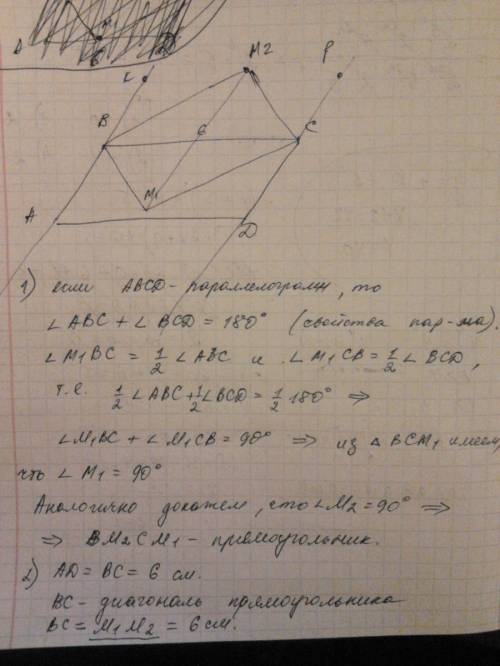 M2
P
K
B
6
C
M1
A
D
1) если ABCD - параллелограмм, то
∠ABC + ∠BCD = 180° (свойства пар-ма).
∠M1BC = 1/2 ∠ABC и ∠M1CB = 1/2 ∠BCD,
т.е. 1/2 ∠ABC + 1/2 ∠BCD = 1/2 180° ⇒
∠M1BC + ∠M1CB = 90° ⇒ из △BCM1 имеем,
что ∠M1 = 90°
Аналогично докажем, что ∠M2 = 90° ⇒
⇒ BM2CM1 - прямоугольник.
2) AD = BC = 6 см.
BC - диагональ прямоугольника
BC = M1M2 = 6 см.